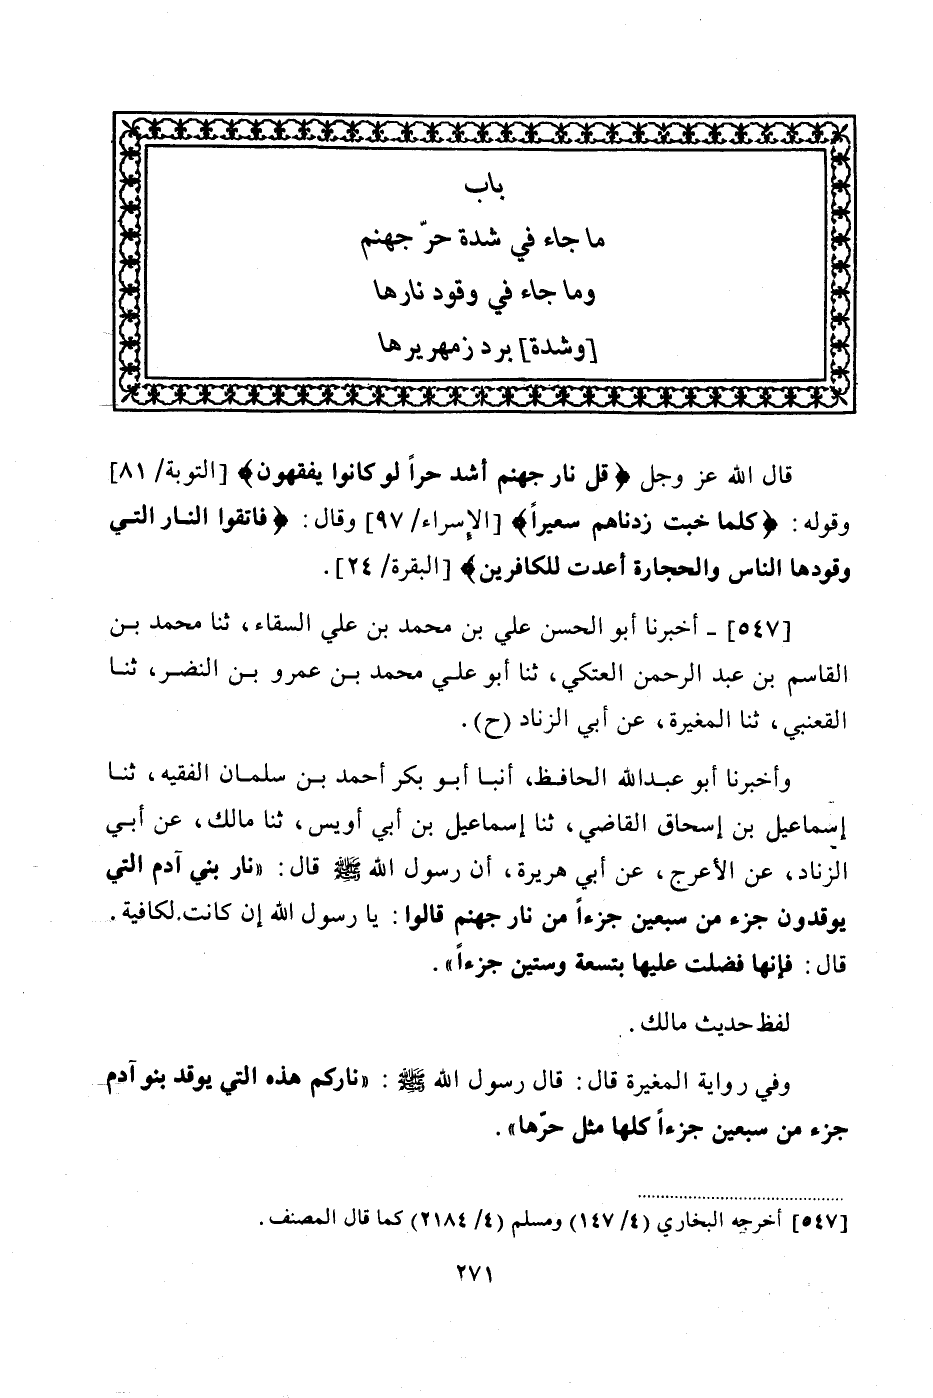 باب
ما جاء في شدة حرّ جهنم
وما جاء في وقود نارها
[وشدة] برد زمهريرها
قال الله عز وجل ﴿قل نار جهنم أشد حراً لو كانوا يفقهون﴾ [التوبة/ ٨١]
وقوله: ﴿كلما خبت زدناهم سعيراً﴾ [الإسراء/ ٩٧] وقال: ﴿فاتقوا النار التي
وقودها الناس والحجارة أعدت للكافرين﴾ [البقرة/ ٢٤].
[٥٤٧] ـ أخبرنا أبو الحسن علي بن محمد بن علي السقاء، ثنا محمد بن
القاسم بن عبد الرحمن العتكي، ثنا أبو علي محمد بن عمرو بن النضر، ثنا
القعنبي، ثنا المغيرة، عن أبي الزناد (ح).
وأخبرنا أبو عبدالله الحافظ، أنبا أبو بكر أحمد بن سلمان الفقيه، ثنا
إسماعيل بن إسحاق القاضي، ثنا إسماعيل بن أبي أويس، ثنا مالك، عن أبي
الزناد، عن الأعرج، عن أبي هريرة، أن رسول الله ﷺ قال: «نار بني آدم التي
يوقدون جزء من سبعين جزءاً من نار جهنم قالوا: يا رسول الله إن كانت لكافية.
قال: فإنها فضلت عليها بتسعة وستين جزءاً».
لفظ حديث مالك.
وفي رواية المغيرة قال: قال رسول الله ﷺ: «ناركم هذه التي يوقد بنو آدم
جزء من سبعين جزءاً كلها مثل حرّها».
[٥٤٧] أخرجه البخاري (٤/ ١٤٧) ومسلم (٤/ ٢١٨٤) كما قال المصنف.
٢٧١